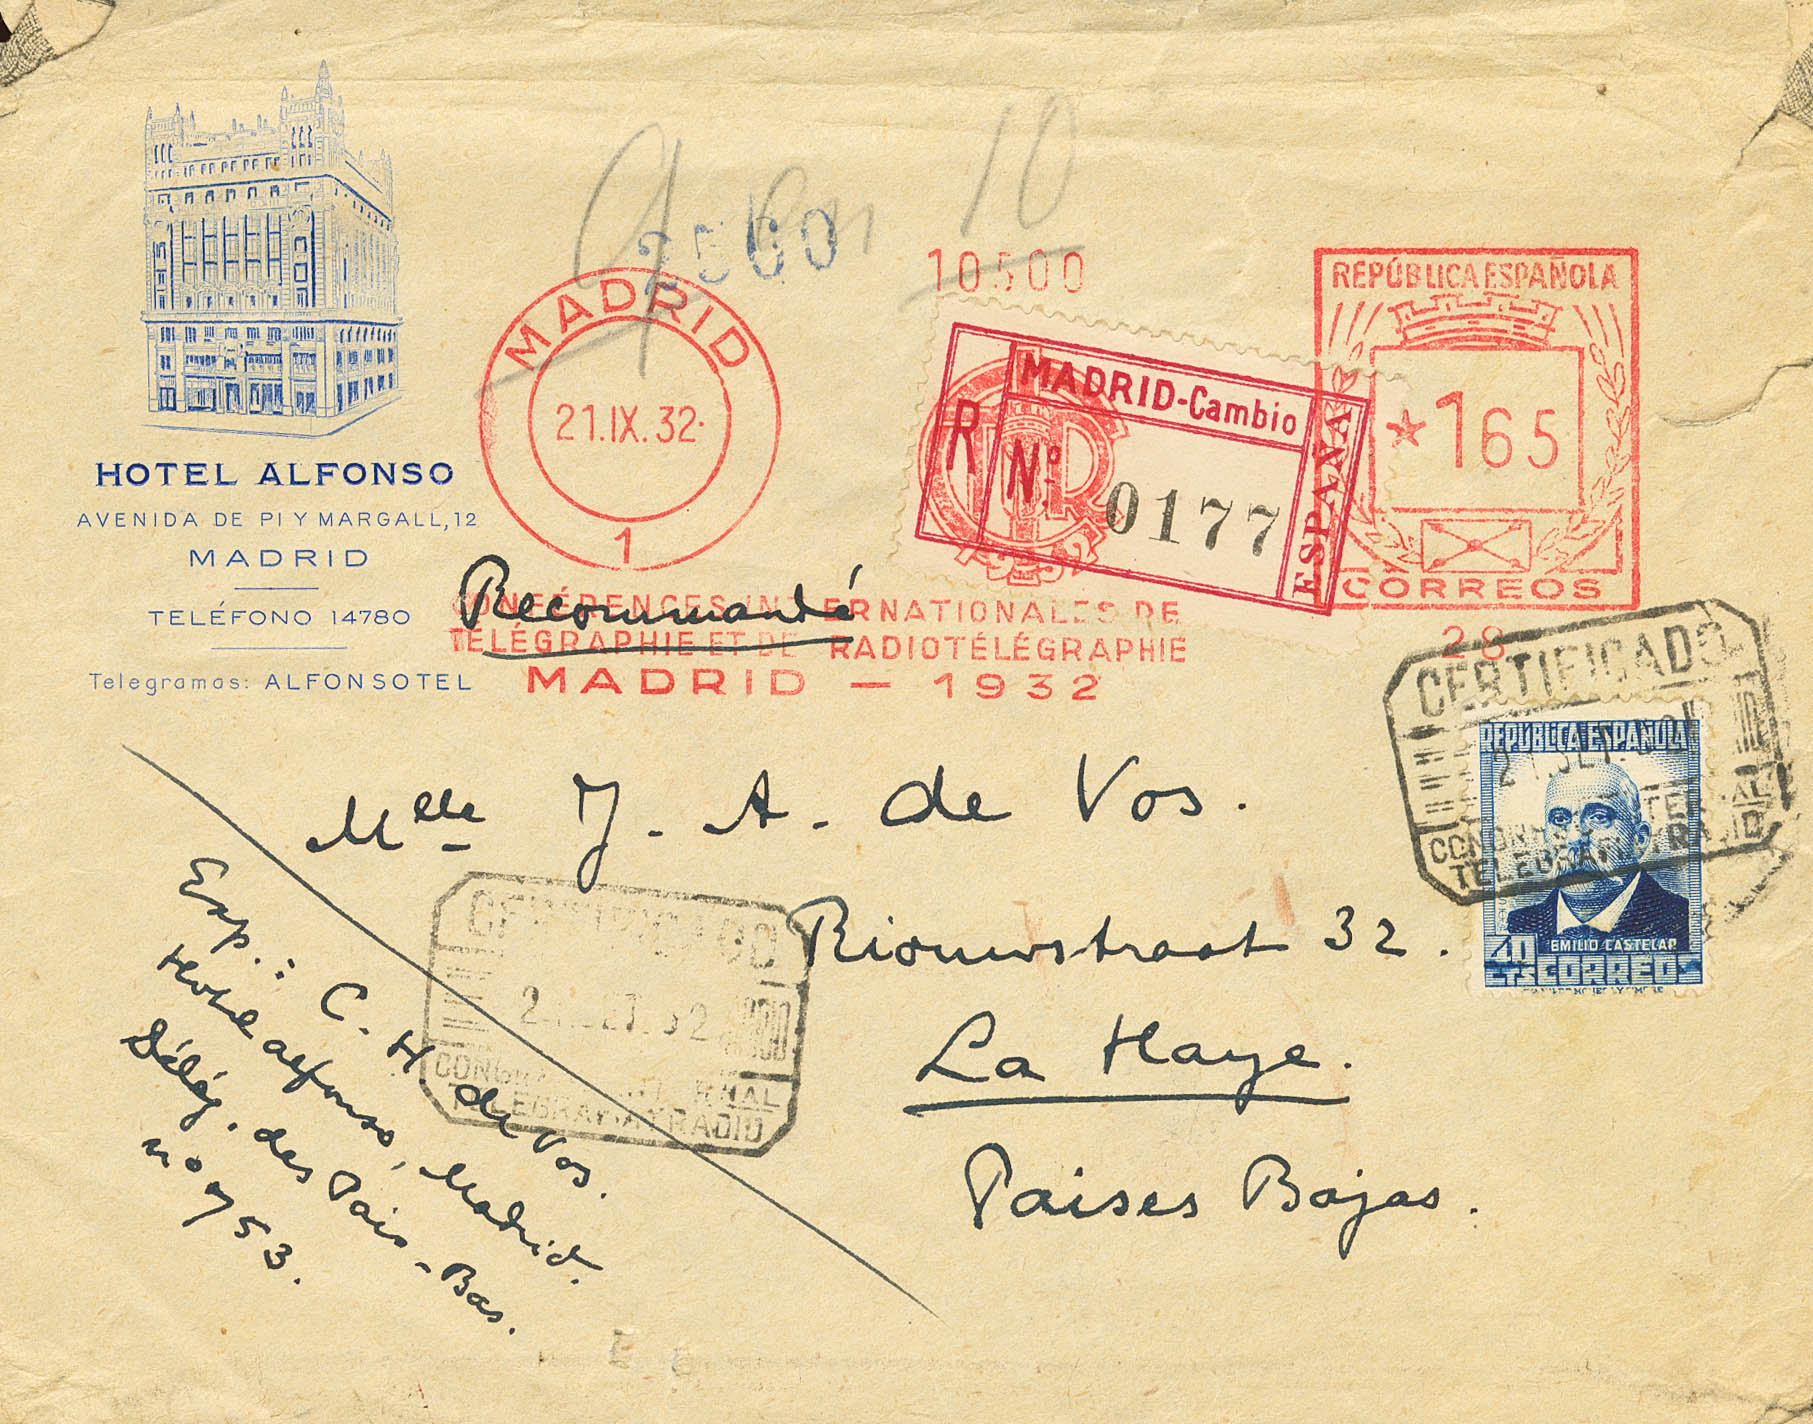 HOTEL ALFONSO
AVENIDA DE PI Y MARGALL, 12
MADRID
TELÉFONO 14780
Telegramas: ALFONSOTEL
10
2500
MADRID
21.IX.32
1
10500
R
MADRID-Cambio
Nº 0177
ESPAÑA
1932
REPÚBLICA ESPAÑOLA
★165
CORREOS
28
Recommandé
CONFÉRENCES INTERNATIONALES DE
TÉLÉGRAPHIE ET DE RADIOTÉLÉGRAPHIE
MADRID — 1932
CERTIFICADO
21.SET.
TELEGRAFIA Y RADIO
REPÚBLICA ESPAÑOLA
EMILIO CASTELAR
40 CTS CORREOS
Mlle J. A. de Vos.
Riouwstraat 32.
La Haye.
Paises Bajas.
CERTIFICADO
TELEGRAFIA Y RADIO
Exp.: C. H. de Vos.
Hotel Alfonso, Madrid.
Délég. des Pais-Bas.
no 753.